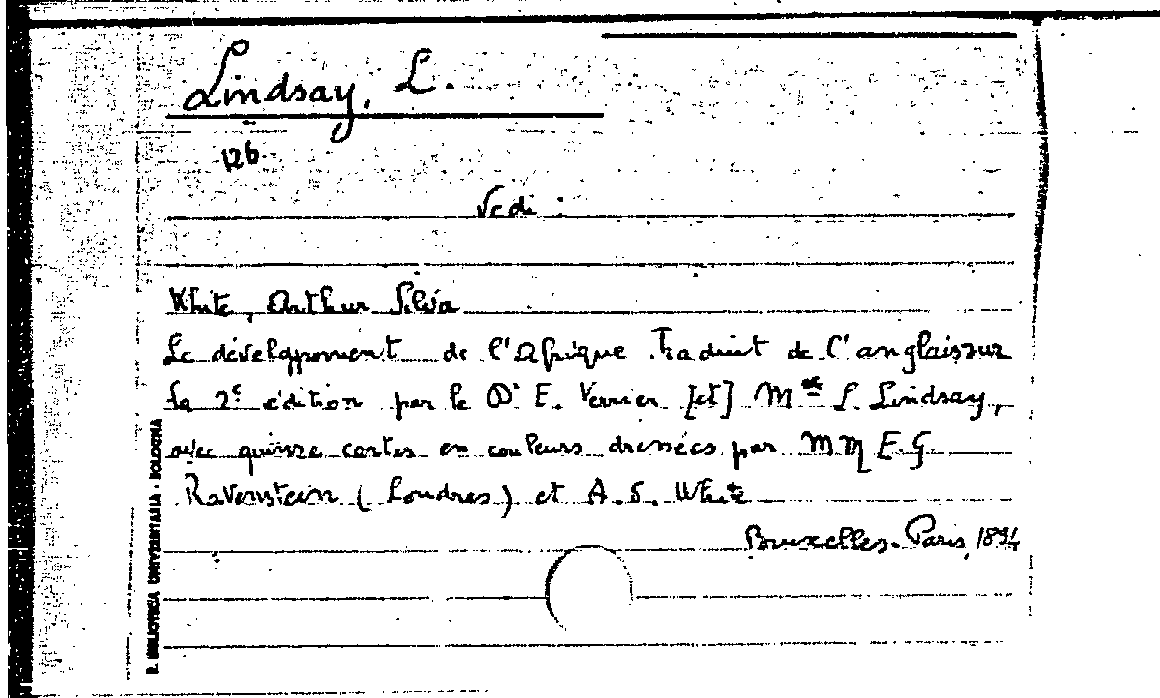 Lindsay, L.
126.
Vedi :
White, Arthur Silva
Le développement de l'Afrique. Traduit de l'anglais sur
la 2e édition par le Dr E. Verrier [et] Mme L. Lindsay,
avec quinze cartes en couleurs dressées par MM E.G.
Ravenstein (Londres) et A.S. White
Bruxelles-Paris, 1894
R. BIBLIOTECA UNIVERSITARIA - BOLOGNA